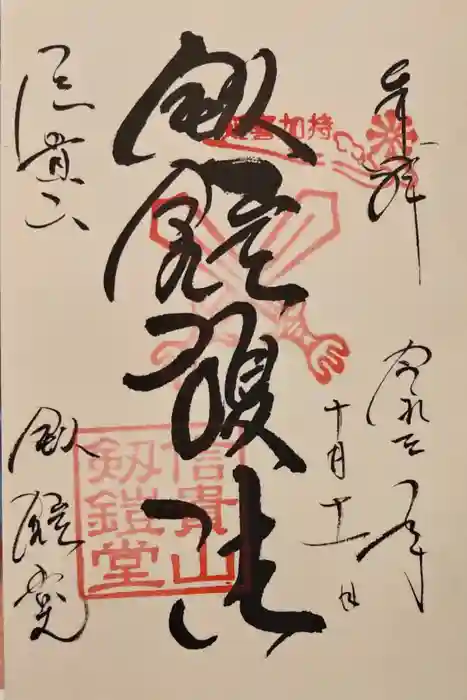 奉拝
令和
年
十月十一日
加持
剱鎧護法
信貴山
剱鎧堂
信貴山
剱鎧堂